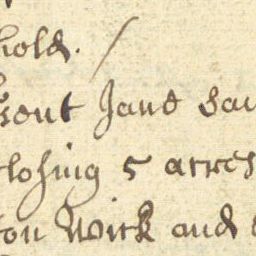 hold.
sent Jane
closing 5 acres
ton Wick and